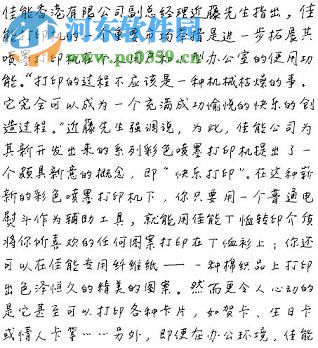 佳能香港有限公司副总经理近藤先生指出，佳
能打印机的一个重要市场举措是进一步拓展其
喷墨打印机在家庭和小型办公室的使用功
能。“打印的过程不应该是一种机械枯燥的事，
它完全可以成为一个充满成功愉悦的快乐的创
造过程。”近藤先生强调说，为此，佳能公司为
其新开发出来的系列彩色喷墨打印机提出了一
个颇具新意的概念，即“快乐打印”。在这种崭
新的彩色喷墨打印机下，你只要用一个普通电
熨斗作为辅助工具，就能用佳能T恤转印介质
将你所喜欢的任何图案打印在T恤衫上；你还
可以在佳能专用纤维纸——一种棉织品上打印
出色泽恒久的精美的图案。然而更令人心动的
是它甚至可以打印各种卡片，如贺卡、生日卡
或情人卡等……另外，即便在办公环境，佳能
河东软件园
www.pc0359.cn